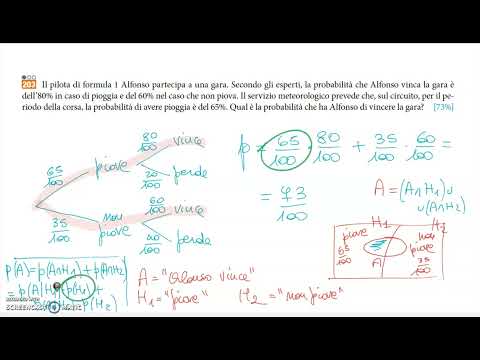 203 Il pilota di formula 1 Alfonso partecipa a una gara. Secondo gli esperti, la probabilità che Alfonso vinca la gara è
dell'80% in caso di pioggia e del 60% nel caso che non piova. Il servizio meteorologico prevede che, sul circuito, per il pe-
riodo della corsa, la probabilità di avere pioggia è del 65%. Qual è la probabilità che ha Alfonso di vincere la gara? [73%]
80/100 vince
65/100 piove
20/100 perde
35/100 non piove
60/100 vince
40/100 perde
p = 65/100 · 80/100 + 35/100 · 60/100 =
= 73/100
A = (A∩H1) ∪
∪ (A∩H2)
H1 H2
piove 65/100
non piove 35/100
A
p(A) = p(A∩H1) + p(A∩H2)
p(H1) +
p(H2)
A = "Alfonso vince"
H1 = "piove" H2 = "non piove"
SCREENCAST-O-MATIC